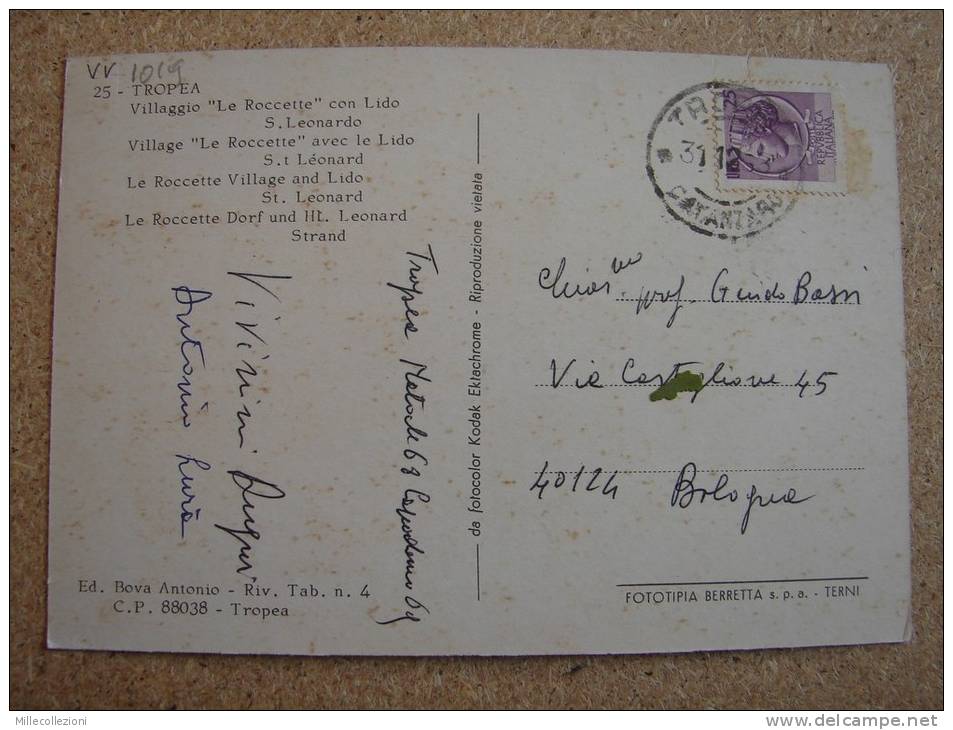 VV 1019
25 - TROPEA
Villaggio "Le Roccette" con Lido
S. Leonardo
Village "Le Roccette" avec le Lido
S.t Léonard
Le Roccette Village and Lido
St. Leonard
Le Roccette Dorf und Ht. Leonard
Strand
Tropea Natale 68 Capodanno 69
Vivi
Auguri
Antonio
Ed. Bova Antonio - Riv. Tab. n. 4
C.P. 88038 - Tropea
da fotocolor Kodak Ektachrome - Riproduzione vietata
25
REPVBBLICA
ITALIANA
31 12
CATANZARO
Chiar.mo prof. Guido Bassi
Via Castiglione 45
40124 Bologna
FOTOTIPIA BERRETTA s.p.a. - TERNI
Millecollezioni
www.delcampe.net